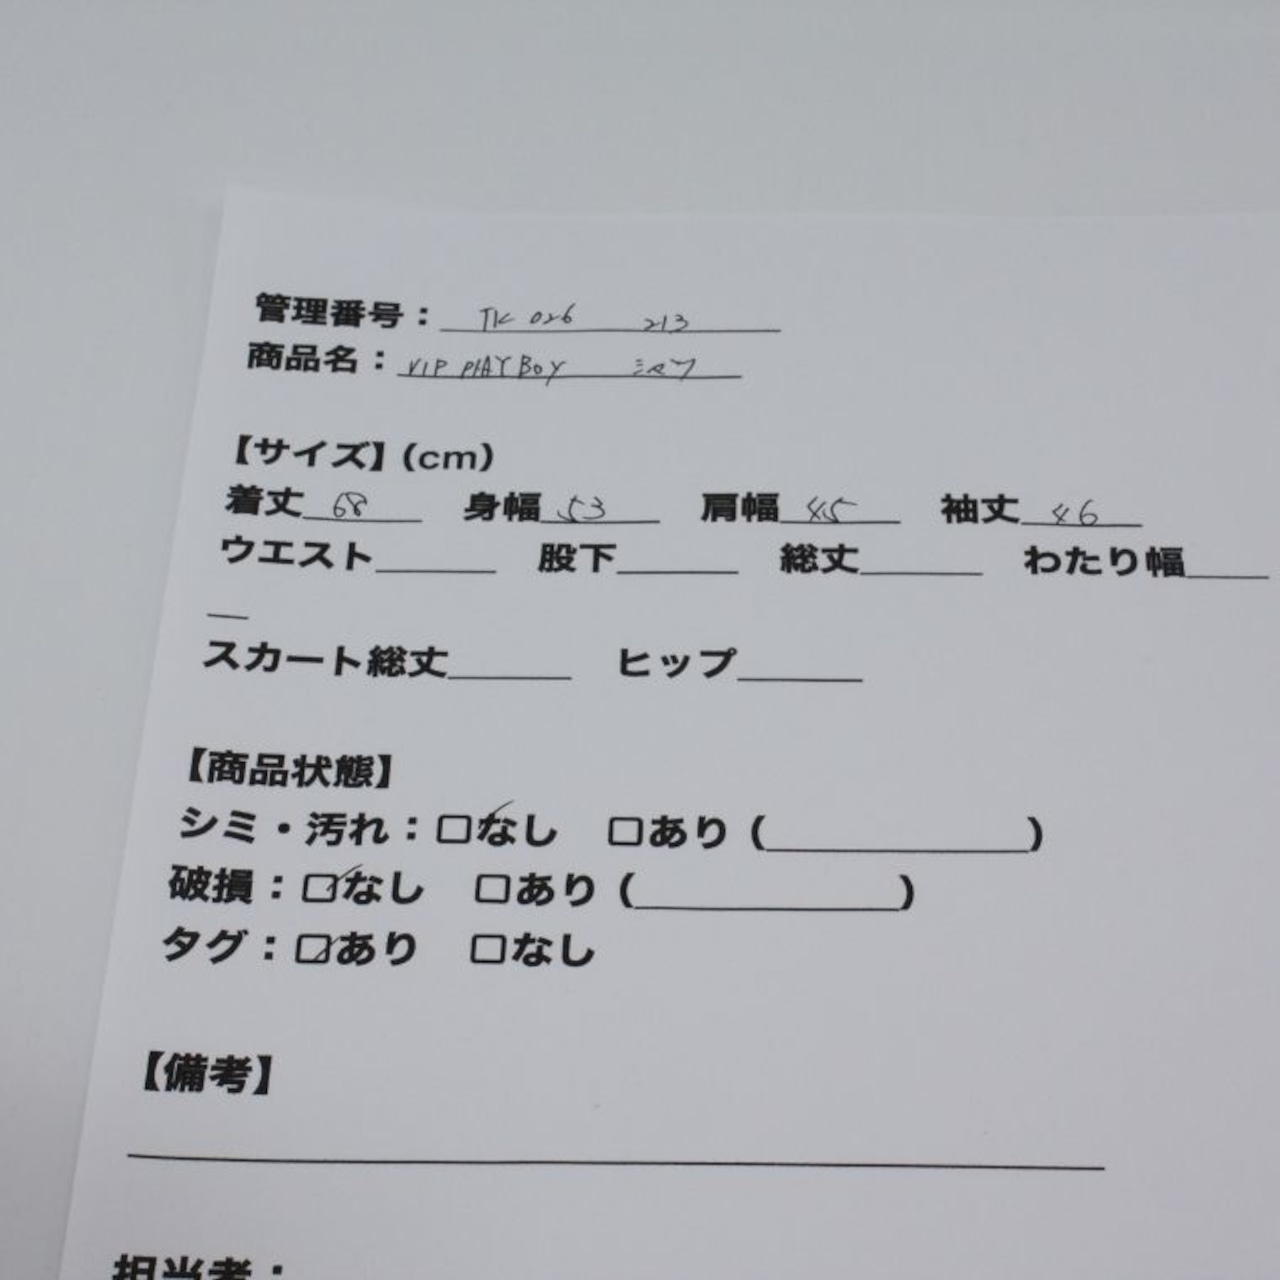 管理番号： TK 026 213
商品名： VIP PLAYBOY シャツ
【サイズ】(cm)
着丈 68 身幅 53 肩幅 45 袖丈 46
ウエスト______ 股下______ 総丈______ わたり幅____
__
スカート総丈______ ヒップ______
【商品状態】
シミ・汚れ：□なし □あり (______________)
破損：☑なし □あり (______________)
タグ：☑あり □なし
【備考】
担当者：